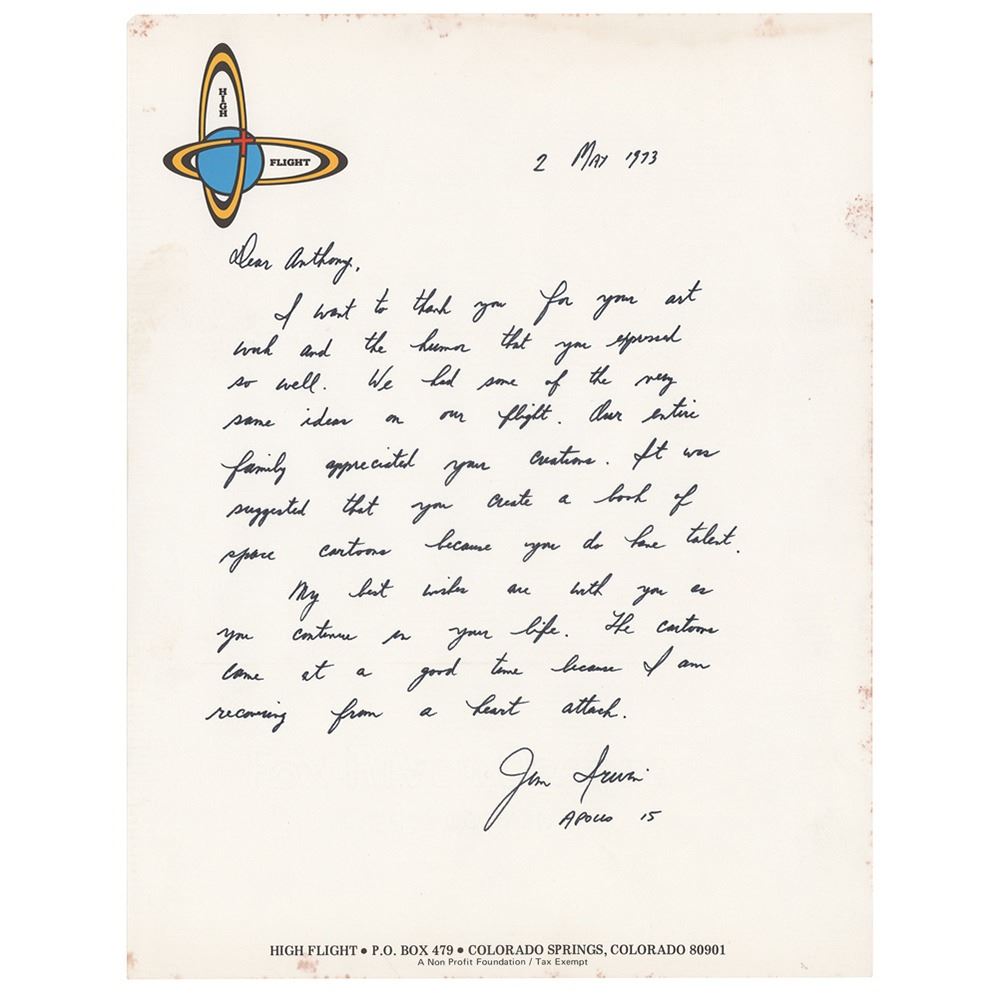 HIGH
FLIGHT
2 May 1973
Dear Anthony,
I want to thank you for your art
work and the humor that you expressed
so well. We had some of the very
same ideas on our flight. Our entire
family appreciated your creations. It was
suggested that you create a book of
space cartoons because you do have talent.
My best wishes are with you as
you continue in your life. The cartoons
came at a good time because I am
recovering from a heart attack.
Jim Irwin
APOLLO 15
HIGH FLIGHT • P.O. BOX 479 • COLORADO SPRINGS, COLORADO 80901
A Non Profit Foundation / Tax Exempt